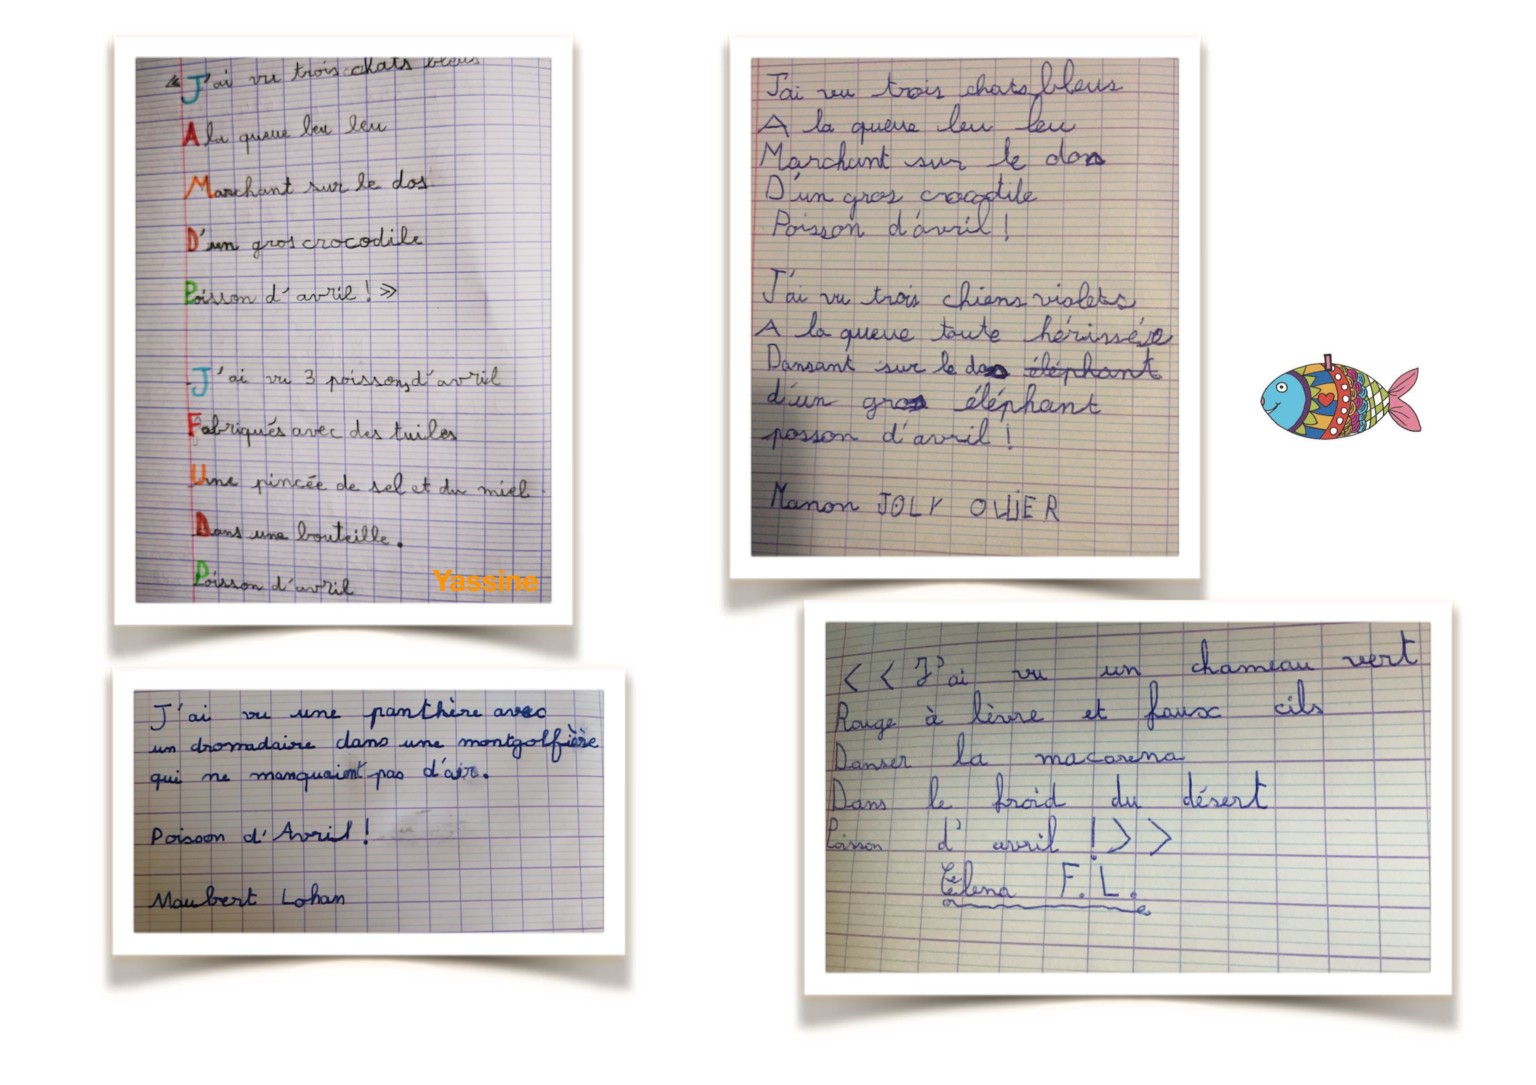 « J'ai vu trois chats bleus
A la queue leu leu
Marchant sur le dos
D'un gros crocodile
Poisson d'avril ! »
J'ai vu 3 poissons d'avril
Fabriqués avec des tuiles
Une pincée de sel et du miel
Dans une bouteille.
Poisson d'avril
Yassine
J'ai vu trois chats bleus
A la queue leu leu
Marchant sur le dos
D'un gros crocodile
Poisson d'avril !
J'ai vu trois chiens violets
A la queue toute hérissée
Dansant sur le dos éléphant
d'un gros éléphant
posson d'avril !
Manon JOLY OLLIER
J'ai vu une panthère avec
un dromadaire dans une montgolfière
qui ne manquaient pas d'air.
Poisson d'Avril !
Maubert Lohan
<< J'ai vu un chameau vert
Rouge à lèvre et faux cils
Danser la macarena
Dans le froid du désert
Poisson d'avril ! >>
Eléna F.L.